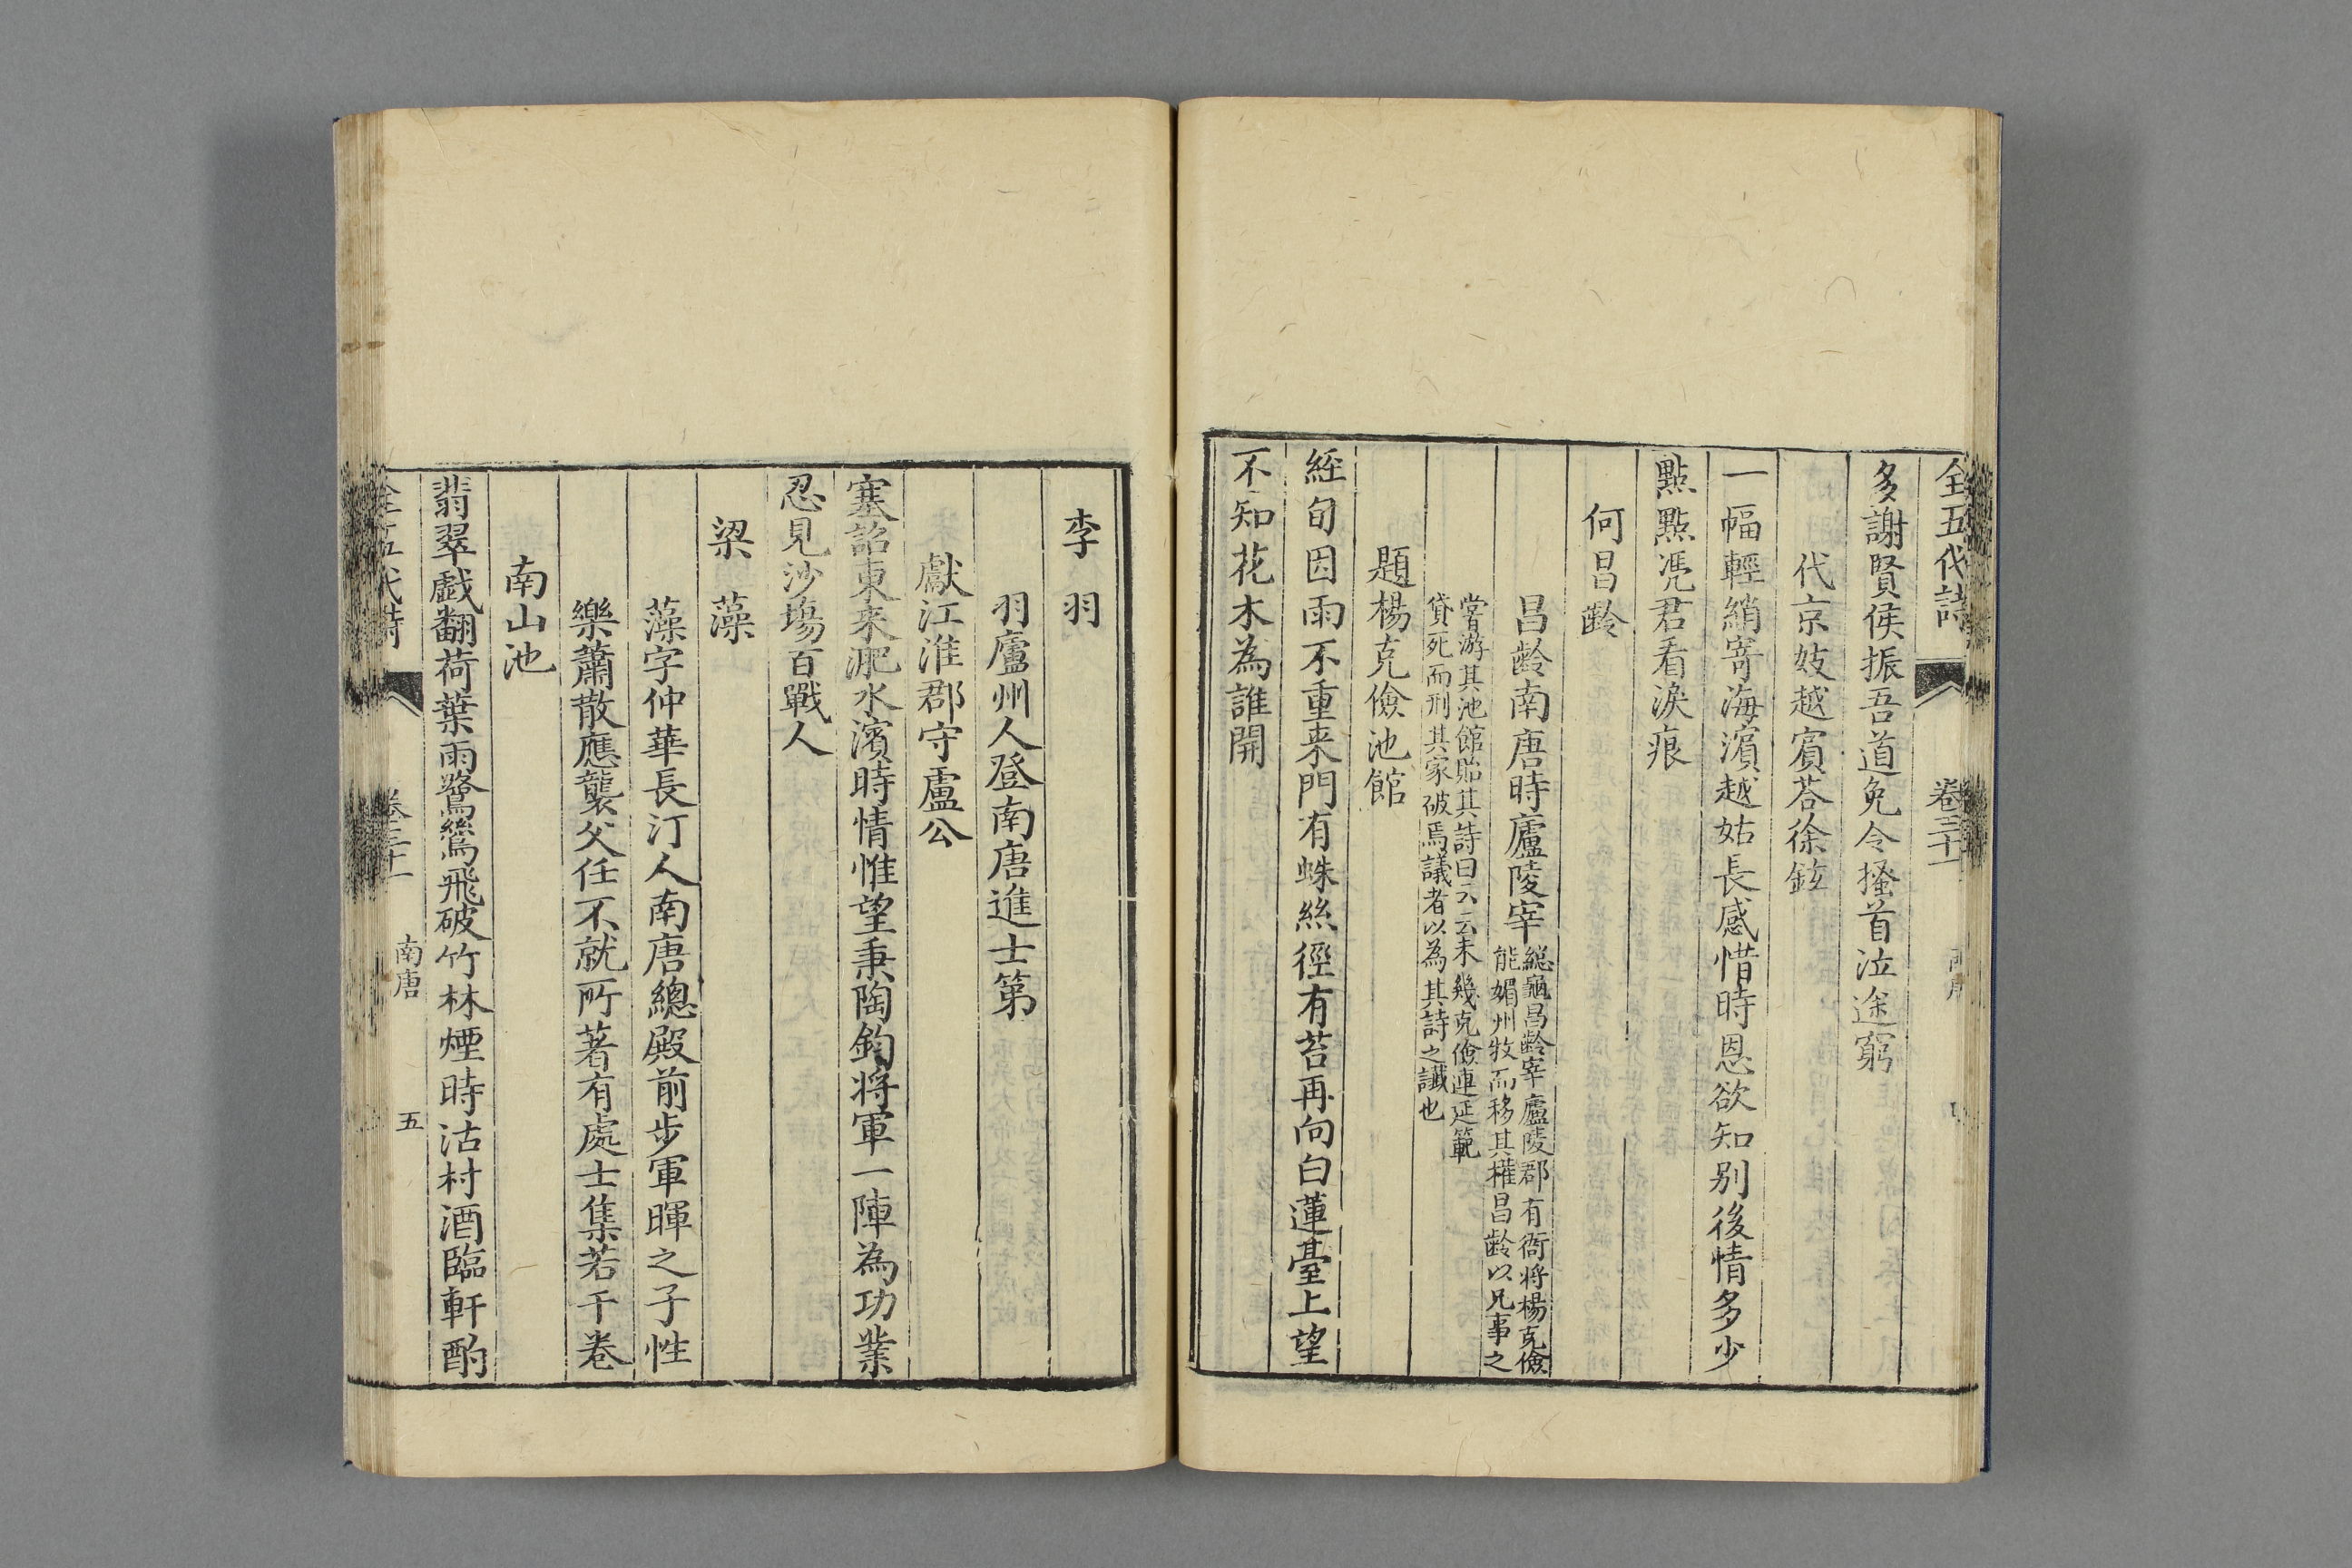 全五代詩 卷三十一
多謝賢侯振吾道免令搔首泣途窮
代京妓越賓荅徐鉉
一幅輕綃寄海濱越姑長感惜時恩欲知别後情多少
點點凴君看淚痕
何昌齡
昌齡南唐時廬陵宰
緫龜昌齡宰廬陵郡有衙将楊克儉
能媚州牧而移其權昌齡以兄事之
甞游其池館貽其詩曰云云未幾克儉連延範
貸死而刑其家破焉議者以為其詩之讖也
題楊克儉池館
經旬因雨不重来門有蛛絲徑有苔再向白蓮臺上望
不知花木為誰開
李羽
羽廬州人登南唐進士第
獻江淮郡守盧公
塞詔東来淝水濱時情惟望秉陶鈞将軍一陣為功業
忍見沙塲百戰人
梁藻
藻字仲華長汀人南唐總殿前步軍暉之子性
樂蕭散應襲父任不就所著有處士集若干卷
南山池
翡翠戲翻荷葉雨鷺鷥飛破竹林煙時沽村酒臨軒酌
全五代詩 卷三十一 南唐 五